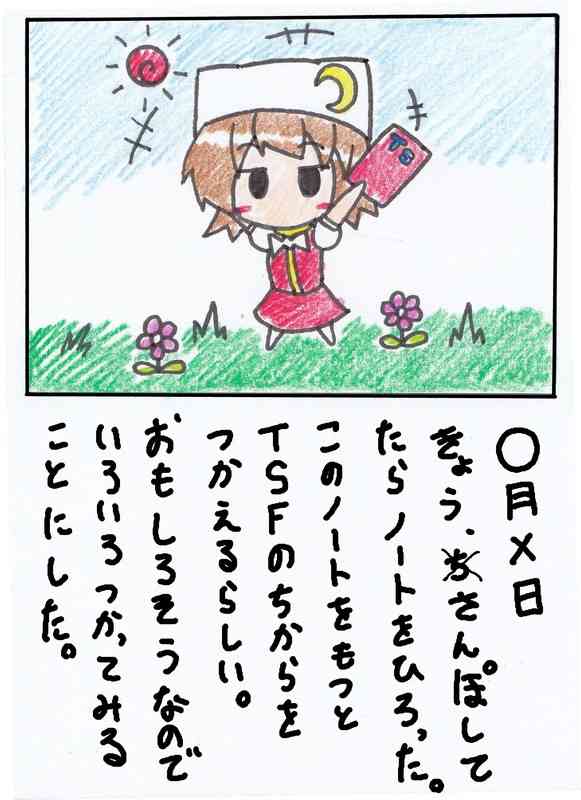 TS
〇月×日
きょう、さんぽして
たらノートをひろった。
このノートをもつと
TSFのちからを
つかえるらしい。
おもしろそうなので
いろいろつかってみる
ことにした。